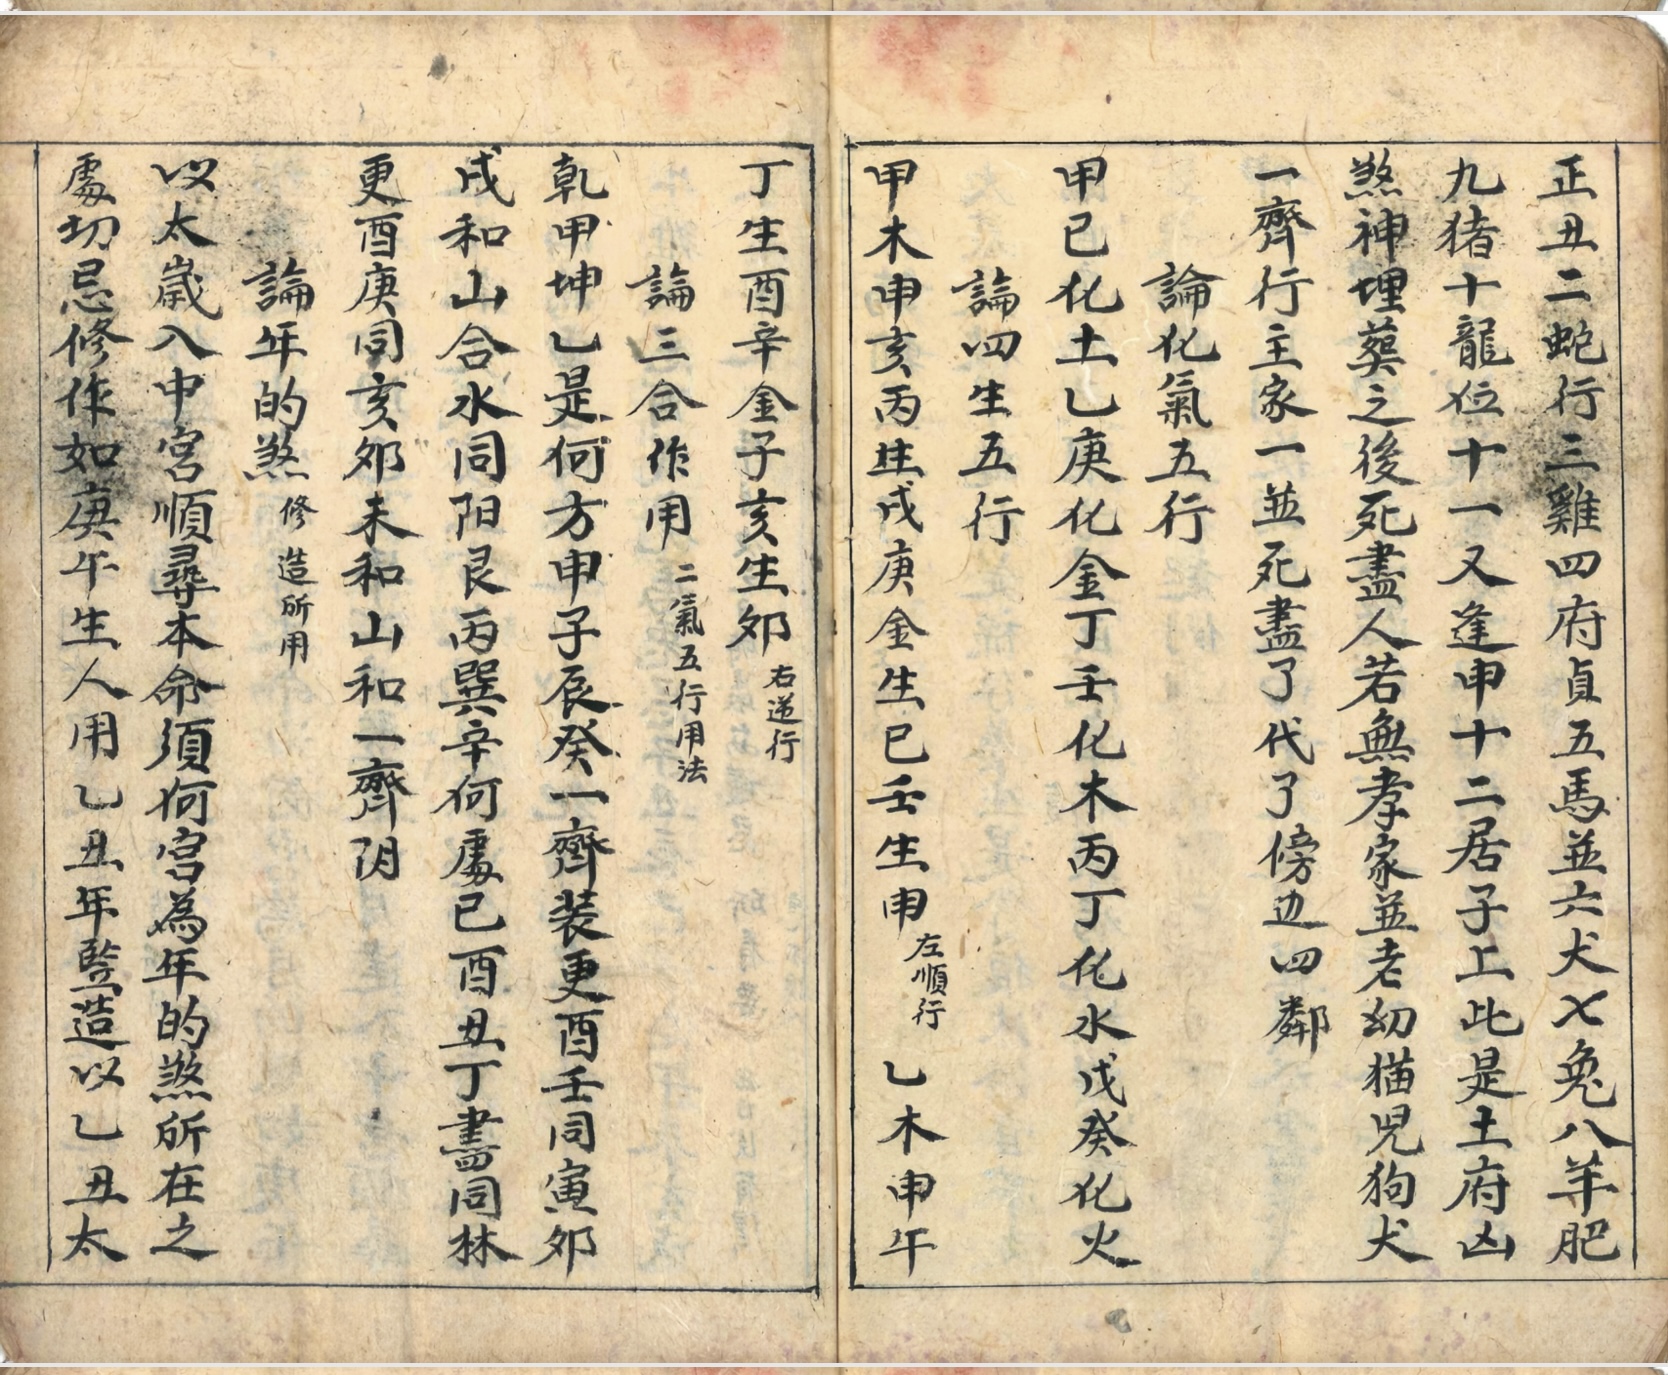 正丑二蛇行三雞四府貞五馬並六犬七兔八羊肥
九猪十龍位十一又逢申十二居子上此是土府凶
煞神埋葬之後死盡人若無孝家並老幼猫児狗犬
一齊行主家一並死盡了代了傍边四鄰
論化氣五行
甲己化土乙庚化金丁壬化木丙丁化水戊癸化火
論四生五行
甲木申亥丙生戌庚金生巳壬生申左順行 乙木申午
丁生酉辛金子亥生卯右逆行
論三合作用二氣五行用法
乾甲坤乙是何方申子辰癸一齊装更酉壬同寅卯
戌和山合水同阳艮丙巽辛何處已酉丑丁盡同林
更酉庚同亥卯未和山和一齊阴
論年的煞修造所用
以太歲入中宮順尋本命須何宮為年的煞所在之
處切忌修作如庚午生人用乙丑年監造以乙丑太